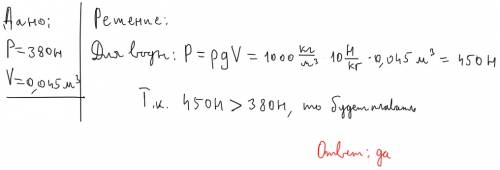 Дано:
P=380Н
V=0,045м³
Решение:
Для воды: P = ρgV = 1000 кг/м³ 10 Н/кг · 0,045 м³ = 450 Н
Т.к. 450Н > 380Н, то будет плавать
Ответ: да